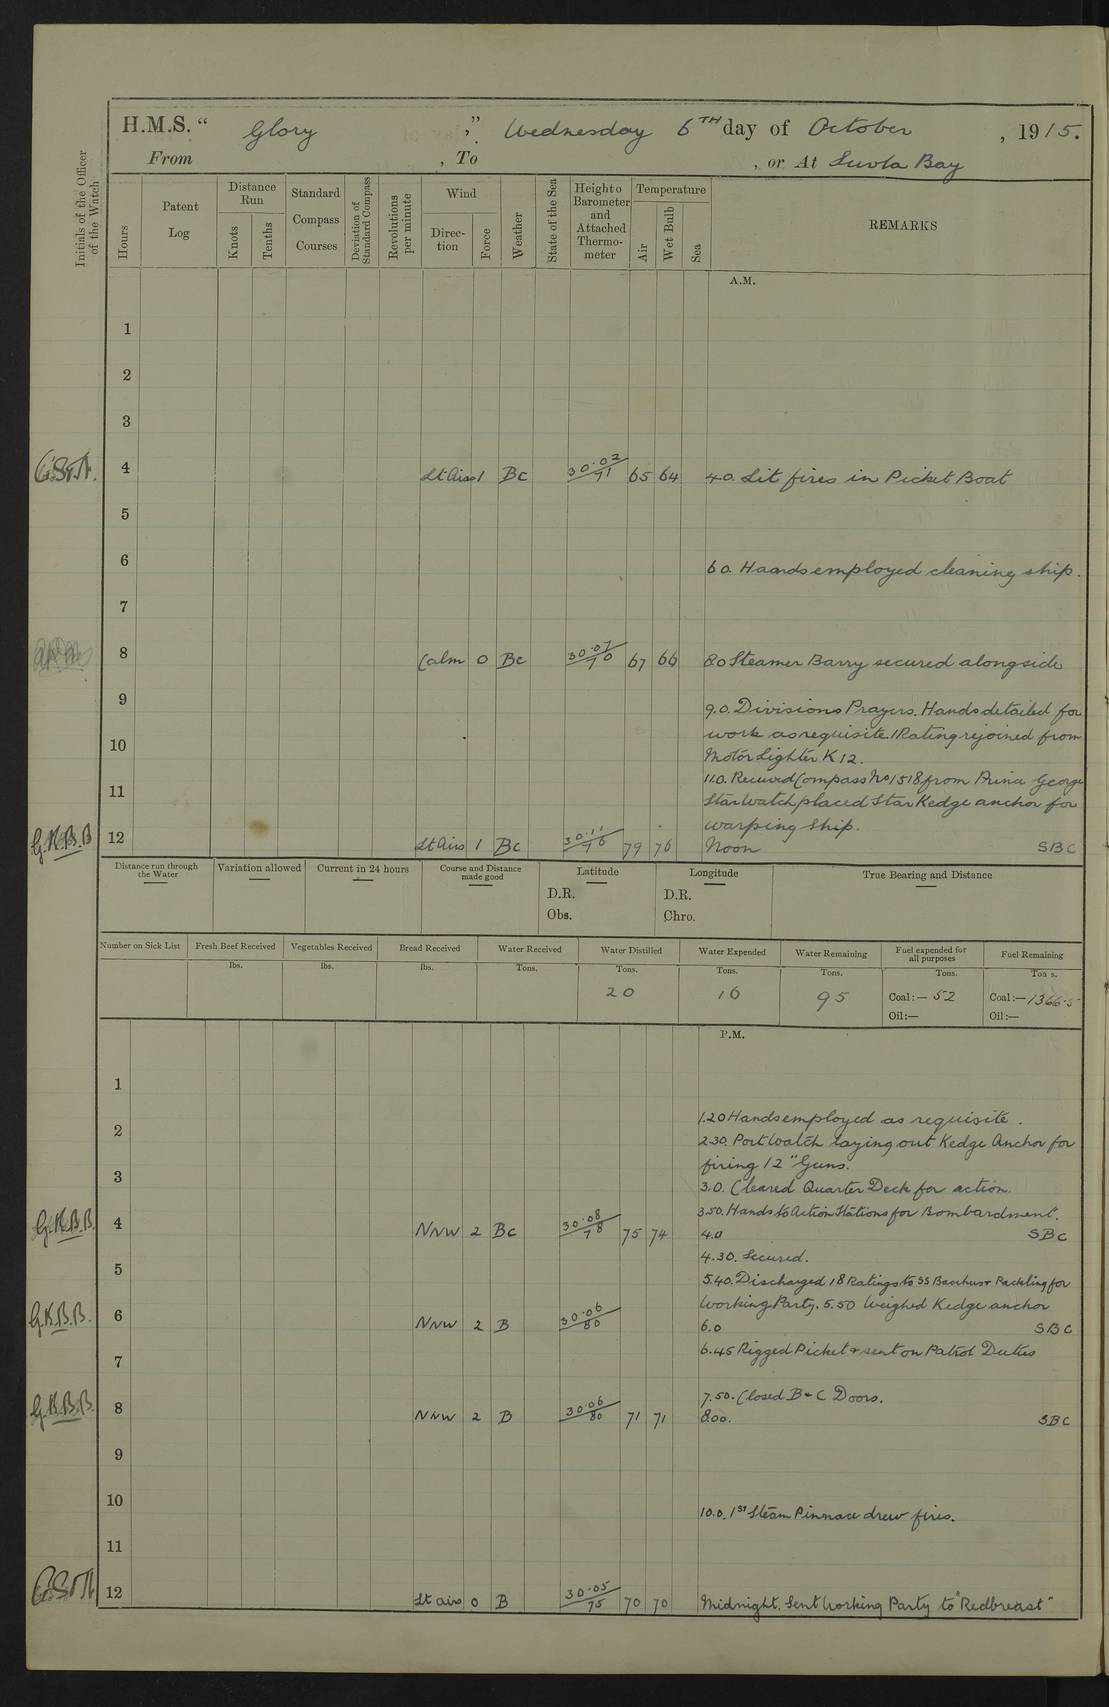 H.M.S. “ Glory ,” Wednesday 6TH day of October , 1915.
From , To , or At Suvla Bay
Initials of the Officer of the Watch
Hours
Patent Log
Distance Run
Knots
Tenths
Standard Compass Courses
Deviation of Standard Compass
Revolutions per minute
Wind
Direc-tion
Force
Weather
State of the Sea
Height o Barometer and Attached Thermo-meter
Temperature
Air
Wet Bulb
Sea
REMARKS
A.M.
1
2
3
4 Lt Airs 1 Bc 30.02/71 65 64 4.0. Lit fires in Picket Boat
5
6 6.0. Hands employed cleaning ship.
7
8 Calm 0 Bc 30.07/70 67 66 8.0 Steamer Barry secured alongside
9 9.0. Divisions Prayers. Hands detailed for
work as requisite. 1 Rating rejoined from
10 Motor Lighter K12.
11.0. Received Compass No 1518 from Prince George
11 Star Watch placed Star Kedge anchor for
warping Ship.
G.K.B.B 12 Lt Airs 1 Bc 30.11/76 79 76 Noon SBC
Distance run through the Water
Variation allowed
Current in 24 hours
Course and Distance made good
Latitude
D.R.
Obs.
Longitude
D.R.
Chro.
True Bearing and Distance
Number on Sick List
Fresh Beef Received lbs.
Vegetables Received lbs.
Bread Received lbs.
Water Received Tons.
Water Distilled Tons. 20
Water Expended Tons. 16
Water Remaining Tons. 95
Fuel expended for all purposes Tons. Coal:— 52 Oil:—
Fuel Remaining Tons. Coal:— 1366.5 Oil:—
P.M.
1
1.20 Hands employed as requisite.
2 2.30. Port Watch laying out Kedge Anchor for
firing 12" Guns.
3 3.0. Cleared Quarter Deck for action
3.50. Hands to Action Stations for Bombardment.
G.K.B.B. 4 NNW 2 Bc 30.08/78 75 74 4.0 SBC
4.30. Secured.
5 5.40. Discharged 18 Ratings to SS Bacchus + Rackling for
Working Party. 5.50 Weighed Kedge anchor
G.K.B.B. 6 NNW 2 B 30.06/80 6.0 SBC
6.45 Rigged Picket + sent on Patrol Duties
7
7.50. Closed B + C Doors.
G.K.B.B. 8 NNW 2 B 30.06/80 71 71 8.00. SBC
9
10 10.0. 1st Steam Pinnace drew fires.
11
12 Lt airs 0 B 30.05/75 70 70 Midnight. Sent Working Party to "Redbreast"